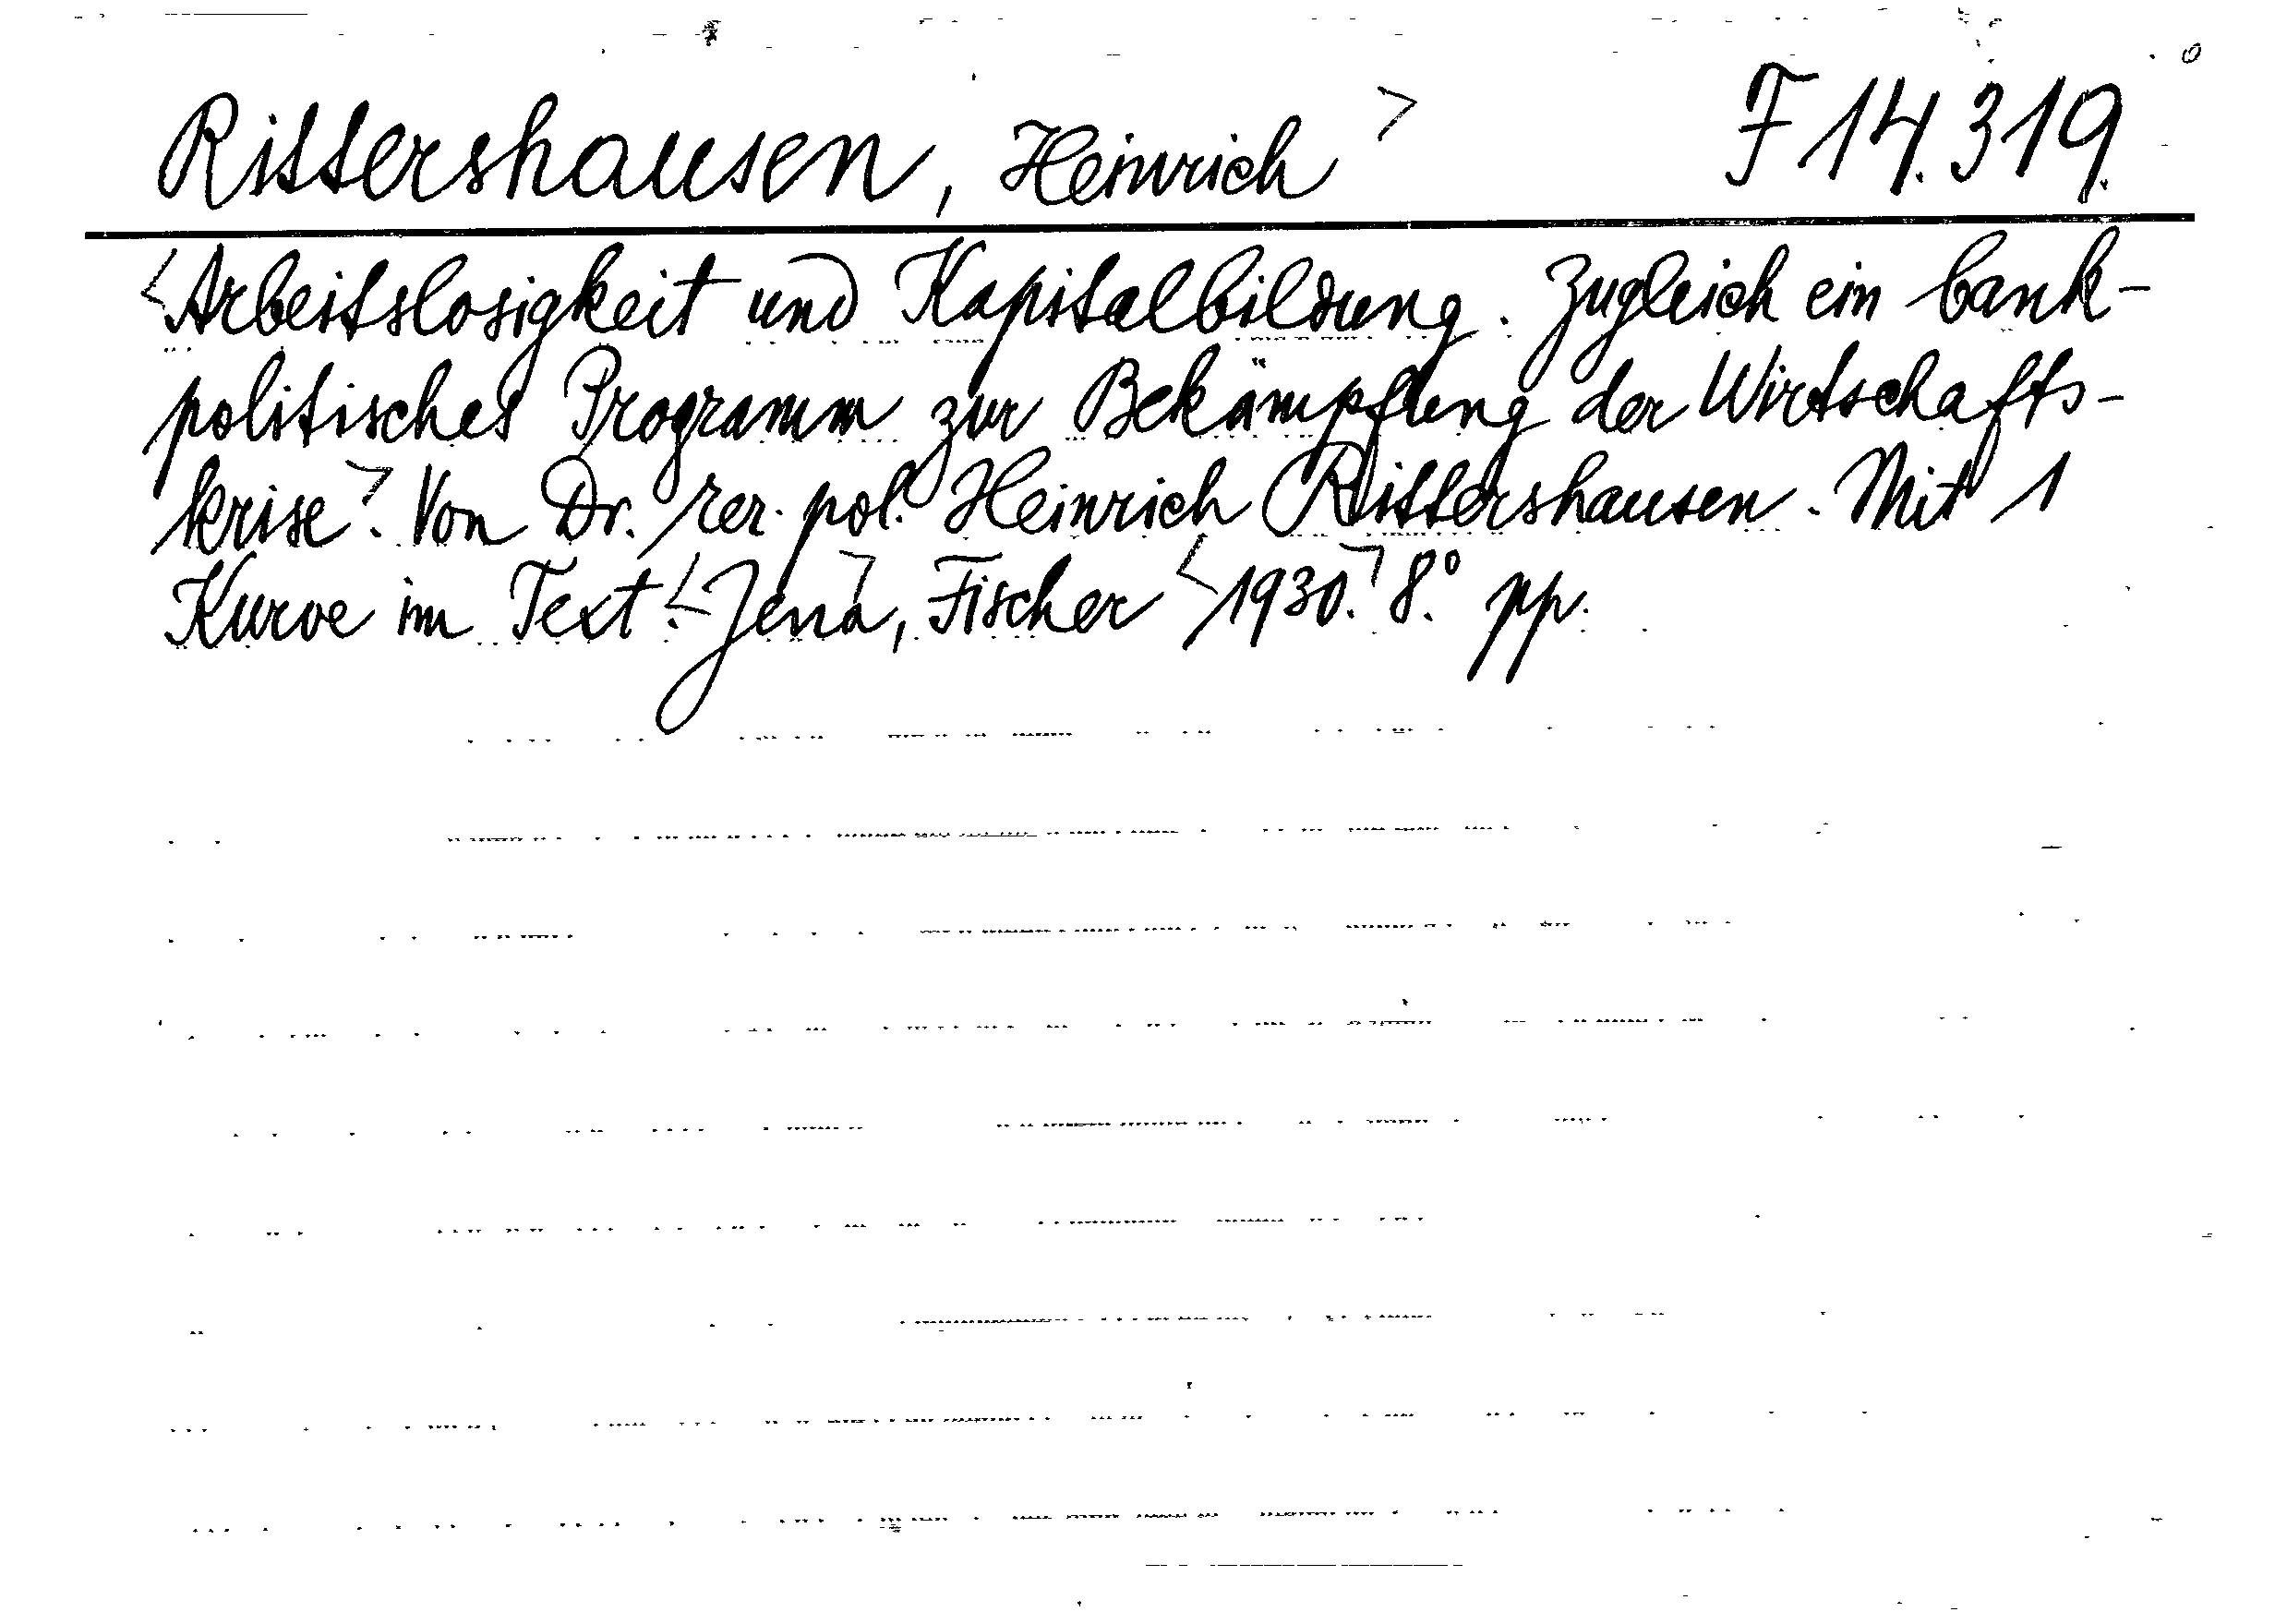 Rittershausen, Heinrich> F 14.319.
<Arbeitslosigkeit und Kapitalbildung. Zugleich ein bank-
politisches Programm zur Bekämpfung der Wirtschafts-
krise>. Von Dr. rer. pol. Heinrich Rittershausen. Mit 1
Kurve im Text. <Jena>, Fischer <1930.> 8.° pp.